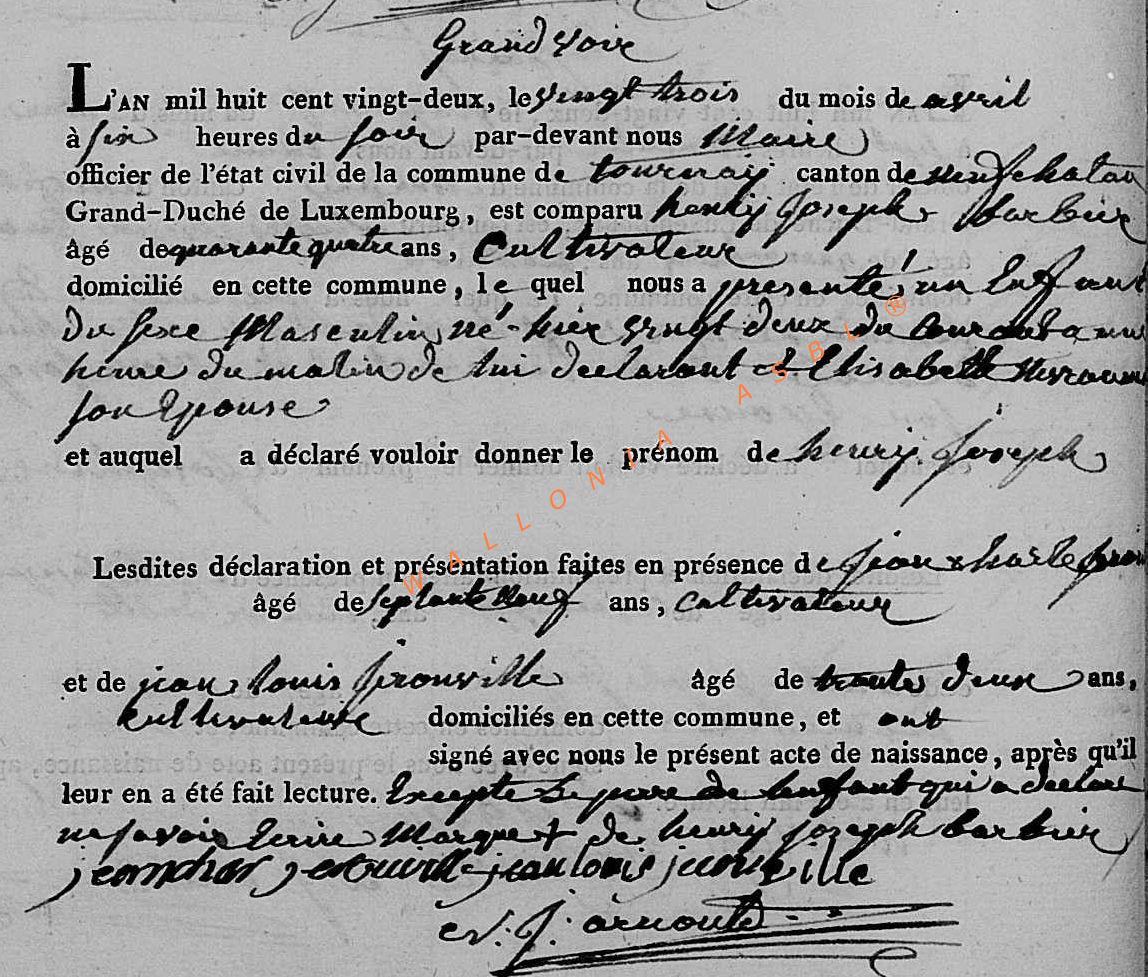 Grandvoir
L'AN mil huit cent vingt-deux, le vingt trois du mois de avril
à six heures du soir par-devant nous Maire
officier de l'état civil de la commune de tournay canton de neufchatau
Grand-Duché de Luxembourg, est comparu henry Joseph barbier
âgé de quarante quatre ans, Cultivateur
domicilié en cette commune, le quel nous a presenté un Enfant
du sexe Masculin né hier vingt deux du courant a une
heure du matin de lui declarant et Elisabeth
son Epouse
et auquel a déclaré vouloir donner le prénom de henry Joseph
Lesdites déclaration et présentation faites en présence de jean charle
âgé de septante neuf ans, cultivateur
et de jean louis jerouville âgé de trente deux ans,
Cultivateur domiciliés en cette commune, et ont
signé avec nous le présent acte de naissance, après qu'il
leur en a été fait lecture. Excepte Le pere de lenfant qui a declare
ne savoir Ecrire Marque + de henry Joseph barbier
jean char jerouville jean louis jerouville
J. arnould
WALLONIA ASBL ®